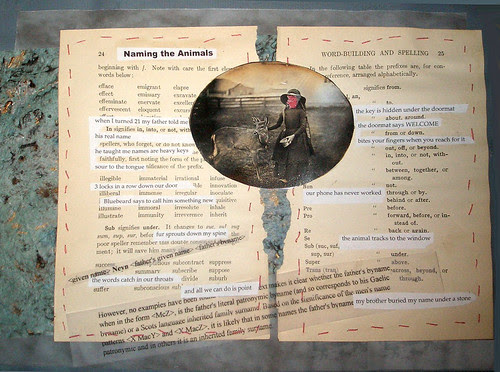 24
Naming the Animals
beginning with f. Note with care the first
words below:
efface emigrant elapse
effect emissary
effeminate enervate
effervescent eloquent
when I turned 21 my father told me
his real name
In signifies in, into, or not, with
spellers, who forget, or do not know
he taught me names are heavy keys
faithfully, first noting the force of the
sour to the tongue
illegible immaterial irrational
3 locks in a row down our door innovation
illiberal immense irregular inoculate
Bluebeard says to call him something new
immune immoral irresolute inhale
illustrate immunity irreverence inherit
Sub signifies under. It changes to suc, suf, sug
sum, sup, sur, before fur sprouts down my spine the
poor speller remember size double
ment; it will save him many
<given name> Neyn <father's given name> <father's byname>
subcontract suppress
summary subscribe suppose
the words catch in our throats divide
suffer subconscious
and all we can do is point
However, no examples have been
when in the form <McZ>, is the father's literal patronymic byname (and so corresponds to his Gaelic
byname) or a Scots language inherited family surname. Based on the significance of the men's name
patterns <X MacY> and <X MacZ>, it is likely that in some names the father's byname
patronymic and in others it is an inherited family surname
makes it clear whether the father's byname
WORD-BUILDING AND SPELLING 25
In the following table the prefixes are, for con-
reference, arranged alphabetically.
signifies from.
to.
the key is hidden under the doormat
about, around.
the doormat says WELCOME
from or down.
bites your fingers when you reach for it
out, off, or beyond.
in, into, or not, with-
out.
between, together, or
among.
not.
our phone has never worked through or by.
behind or after.
Pre before.
Pro forward, before, or in-
stead of.
Re back or again.
Se the animal tracks to the window
Sub (suc, suf,
sup, sur) under.
Super above.
Trans (tran, across, beyond, or
through.
my brother buried my name under a stone